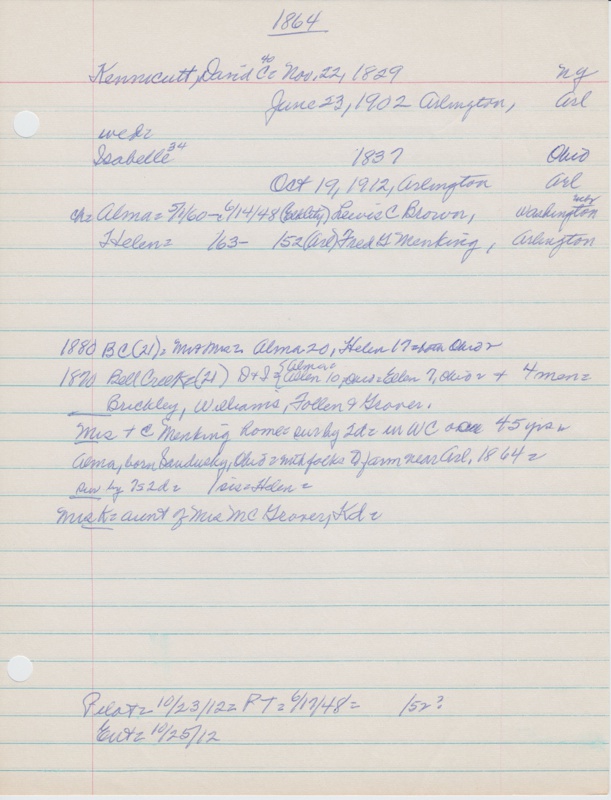 1864
Kennicutt, David C = Nov. 22, 1829 NY
40
June 23, 1902 Arlington, Arl
wed =
Isabelle 34 1837 Ohio
Oct 19, 1912, Arlington Arl
ch = Alma = 5/1/60 - 6/14/48 Lewis C Brown, Washington
Helen = '63 - /52 (Arl) Fred G Menking, Arlington
1880 BC (21) = Mr + Mrs = Alma 20, Helen 17 = born Ohio =
1870 Bell Creek = (21) D + I = Allen 10, Ellen 7, Ohio = + 4 men =
Brickley, Williams, Follen & Grover.
Mrs + C Menking Rome = sur by 2d = in WC over 45 yrs =
Alma, born Sandusky, Ohio = with folks to farm near Arl, 1864 =
sur by 2d = 1 sis = Helen =
Mrs K = aunt of Mrs Mc Grover, Kd =
Pilot = 10/23/12 = PT = 6/17/48 = /52?
Ent = 10/25/12